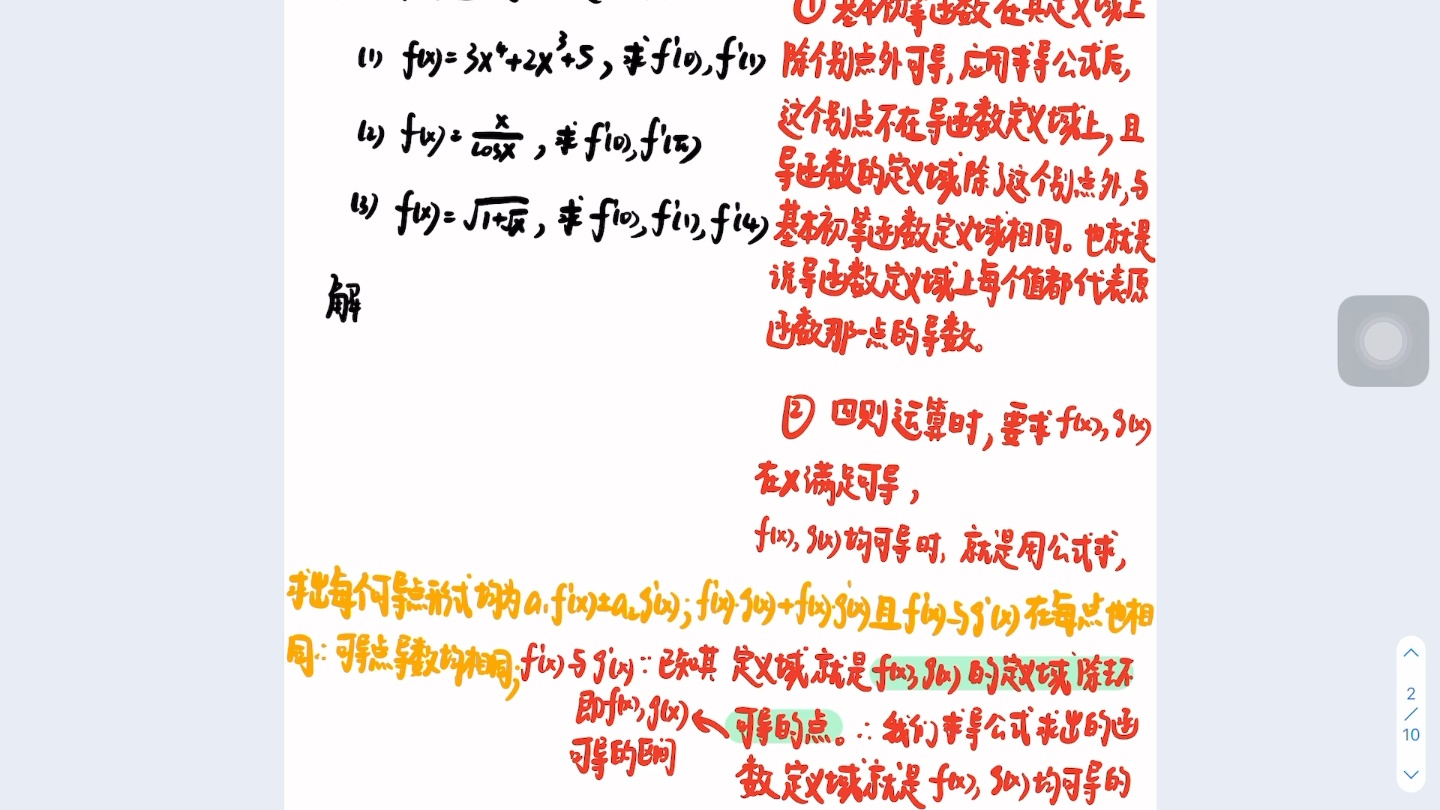 ① 基本初等函数在其定义域上
(1) f(x)=3x⁴+2x³+5, 求f'(0), f'(1)
除个别点外可导, 应用求导公式后,
(2) f(x)=x/cosx, 求f'(0), f'(π)
这个别点不在导函数定义域上, 且
导函数的定义域除了这个别点外, 与
(3) f(x)=√(1+√x), 求f'(0), f'(1), f'(4)
基本初等函数定义域相同。也就是
说导函数定义域上每个值都代表原
解
函数那一点的导数。
② 四则运算时, 要求f(x), g(x)
在x满足可导,
f(x), g(x)均可导时, 就是用公式求,
求出每个可导点形式均为a₁f'(x)±a₂g'(x); f'(x)·g(x)+f(x)·g'(x)且f'(x)与g'(x)在每点也相
同∴可导点导数均相同;
f'(x)与g'(x)∵已知其定义域就是f(x), g(x)的定义域除去不
可导的点。∴我们求导公式求出的函
即f(x), g(x)
可导的区间
数定义域就是f(x), g(x)均可导的
2
/
10